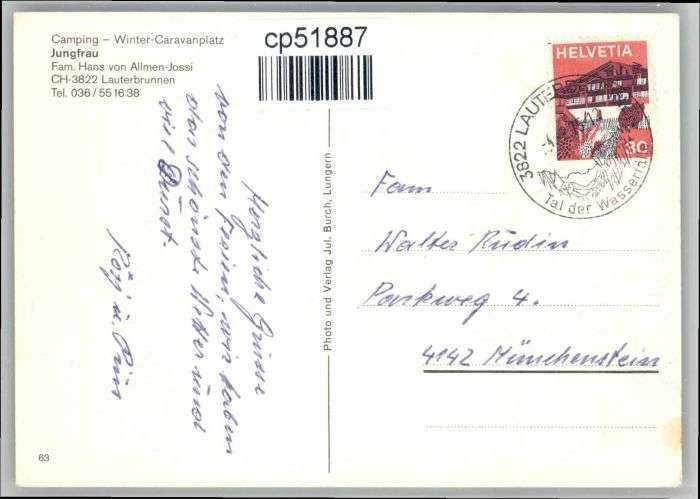 Camping – Winter-Caravanplatz
Jungfrau
Fam. Hans von Allmen-Jossi
CH-3822 Lauterbrunnen
Tel. 036/55 16 38
cp51887
HELVETIA
30
3822 LAUTER
Tal der Wasserf
Herzliche Grüsse
von den Ferien, wir haben
das schönste Wetter und
viel Durst.
u.
Photo und Verlag Jul. Burch, Lungern
Fam
Walter Rudin
Parkweg 4.
4142 Münchenstein
63